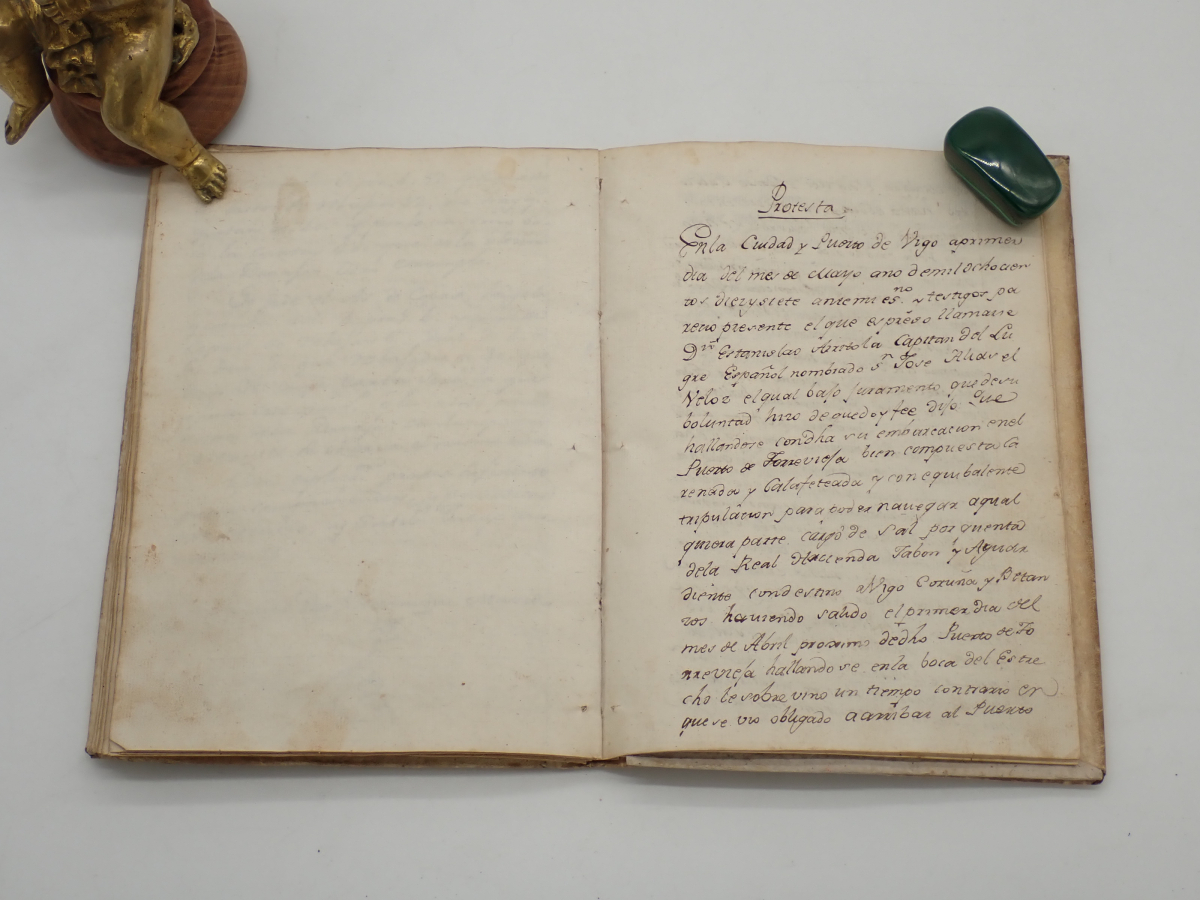 Protesta
En la Ciudad y Puerto de Vigo aprimer
dia del mes de Mayo ano demil ochocien
tos diezysiete antemi es.no y testigos pa
recio presente el que espreso llamarse
Dn Estanislao Capitan del Lu
gre Español nombrado Sn Jose Alias el
Veloz elqual bajo Juramento que desu
boluntad hizo de quedoy fee dijo Que
hallandose condha su embarcacion enel
Puerto de Torrevieja bien compuesta Ca
renada y Calafeteada y con equibalente
tripulacion para poder navegar aqual
quiera parte cargó de Sal por quenta
dela Real Hacienda Jabon y Aguar
diente condestino aVigo Coruña y Betan
zos haviendo salido el primer dia del
mes de Abril proximo dedho Puerto de To
rrevieja hallandose enla boca del Estre
cho le sobrevino un tiempo contrario en
quese vio obligado a arribar al Puerto